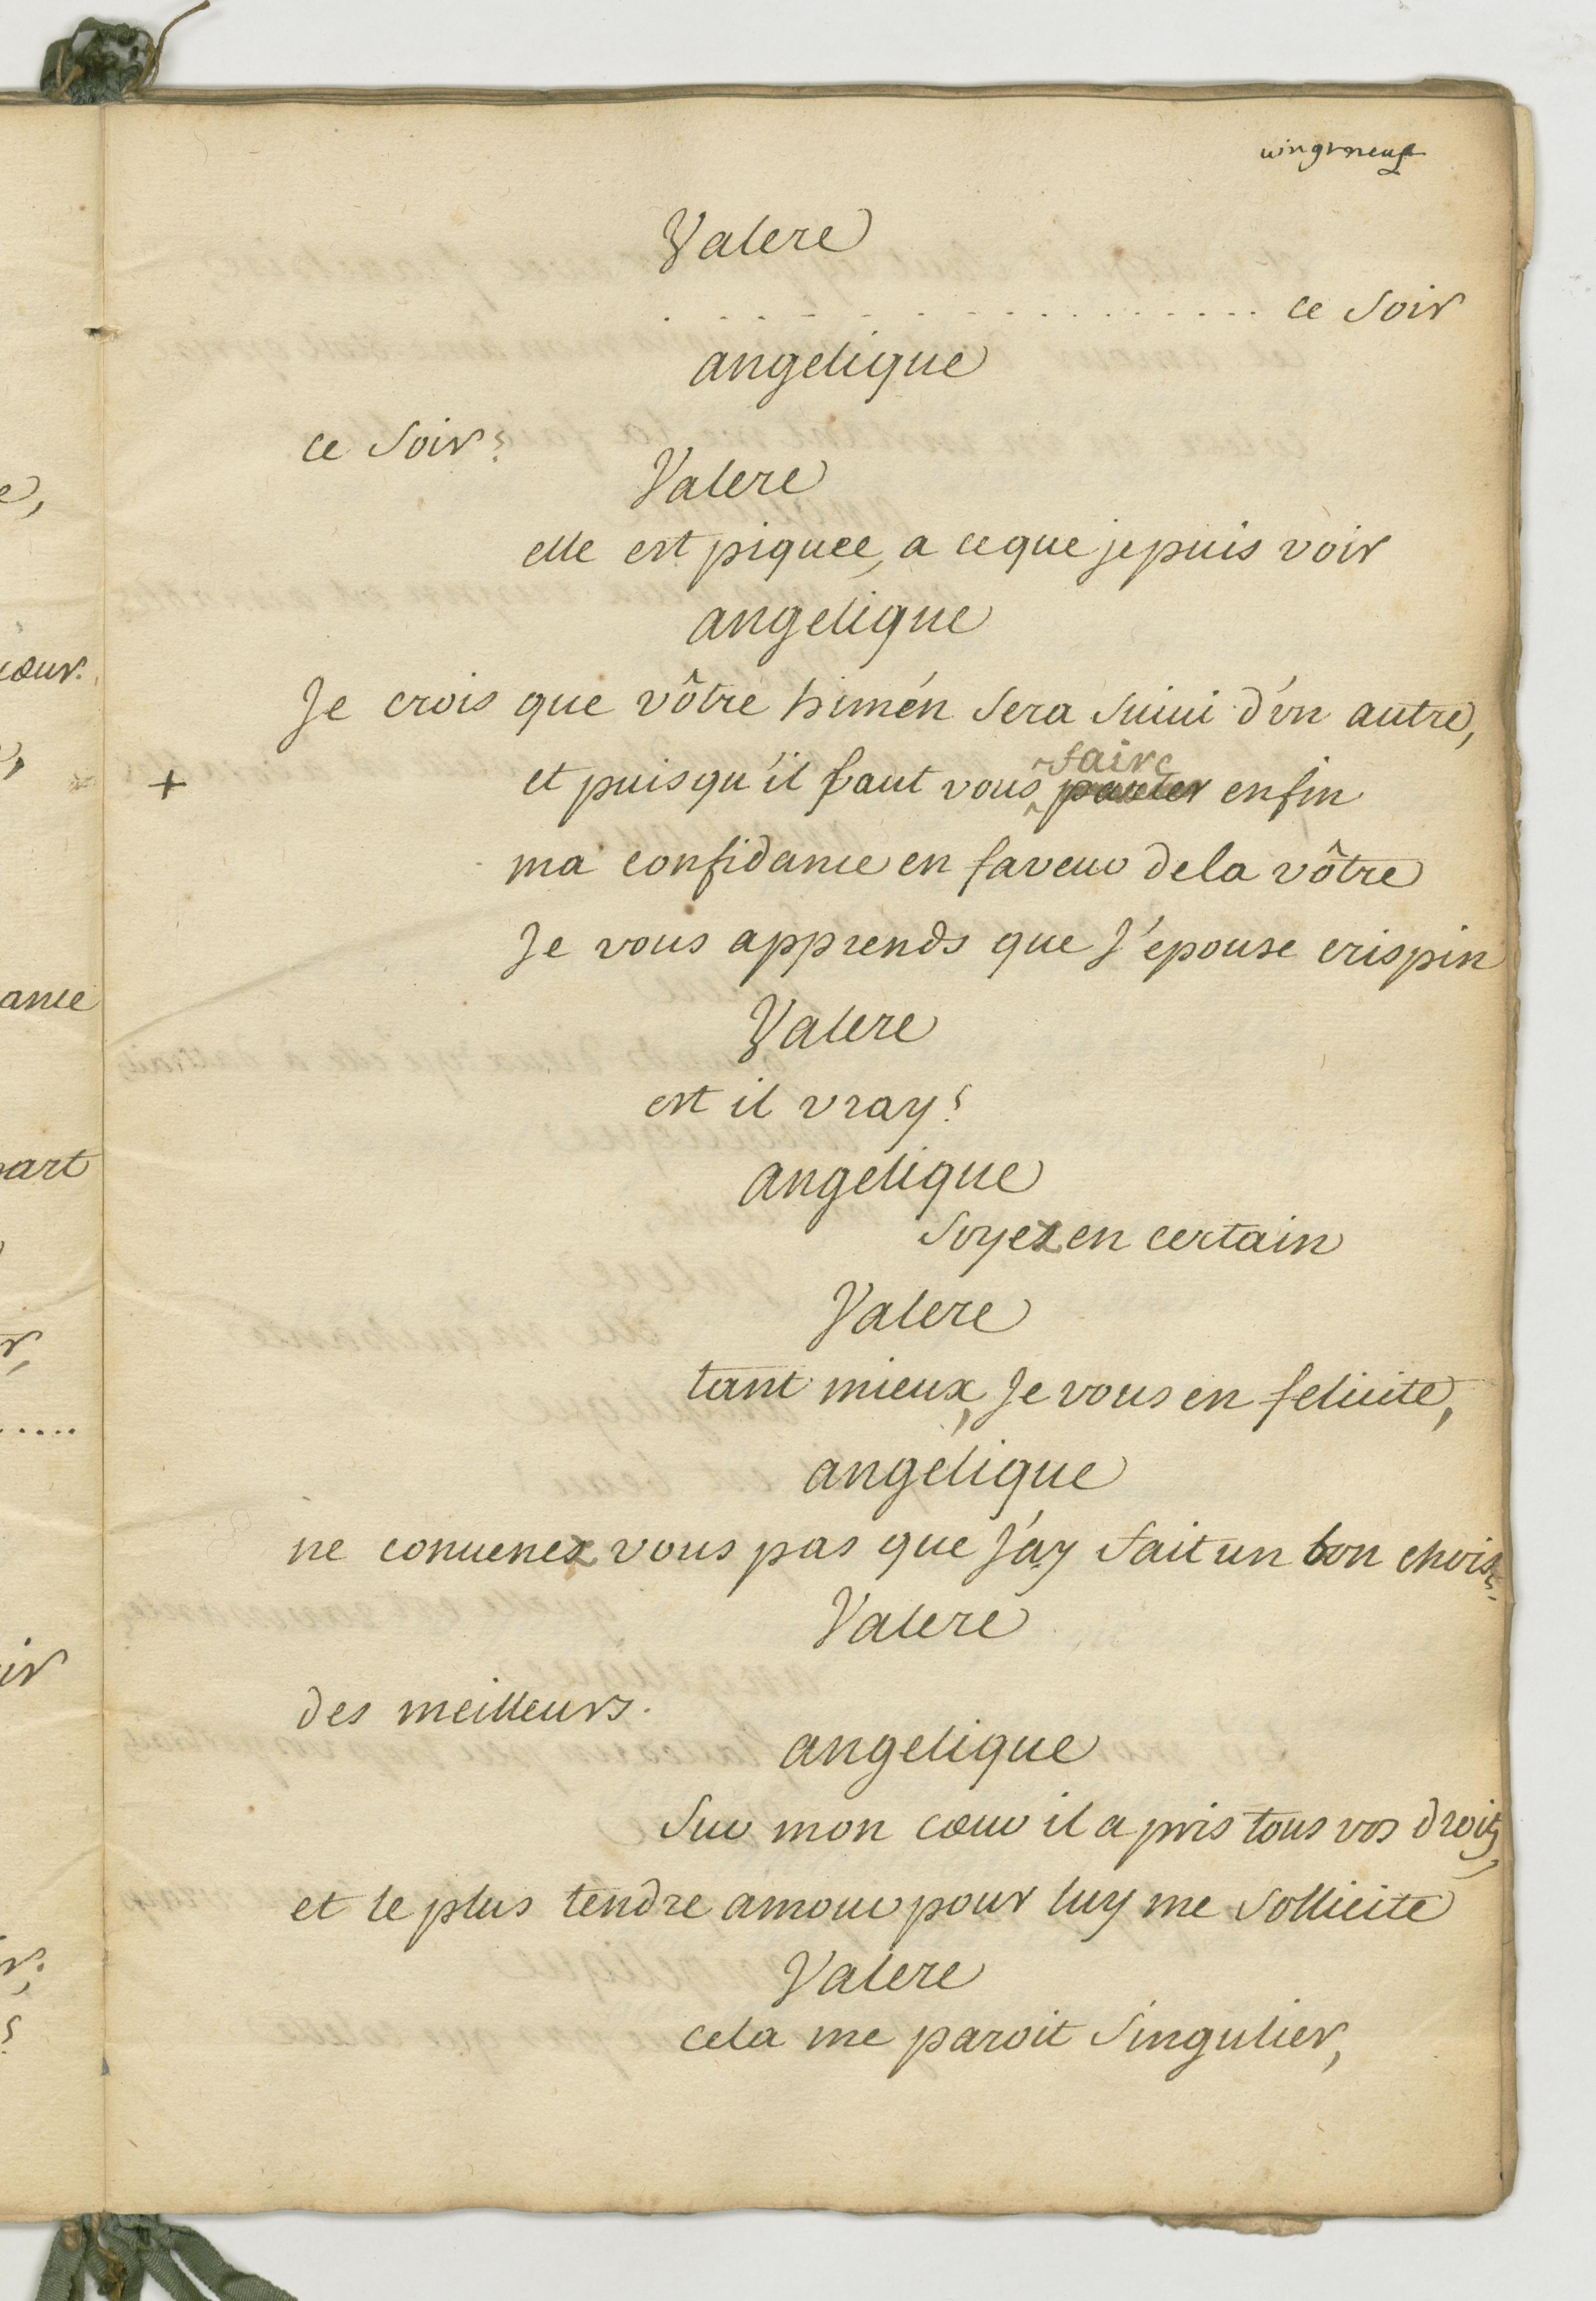 vingtneuf
Valere
. . . . . . . . . . . . . . . . . ce soir
angelique
ce soir?
Valere
elle est piquee, a ce que je puis voir
angelique
Je crois que vôtre himén sera suiui d'vn autre,
faire
+ et puisqu'il faut vous parler enfin
ma confidance en faveur de la vôtre
Je vous apprends que J'epouse crispin
Valere
est il vray?
angelique
soyez en certain
Valere
tant mieux, Je vous en felicite,
angelique
ne conuenez vous pas que J'ay fait un bon chois?
Valere
des meilleurs.
angelique
sur mon cœur il a pris tous vos droits,
et le plus tendre amour pour luy me sollicite
Valere
cela me paroit singulier,